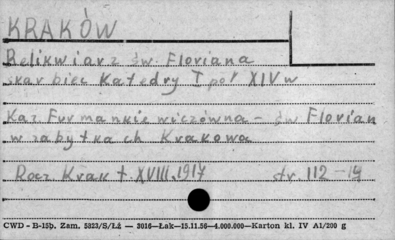 KRAKÓW
Relikwiarz św Floriana
skarbiec Katedry I poł XIV w
Kaz Furmankiewiczówna - św Florian
w zabytkach Krakowa
Rocz Krak t XVIII. 1917 str. 112-19
CWD - B-15b. Zam. 5823/S/Łź — 3016—Łak—15.11.56—4.000.000—Karton kl. IV A1/200 g